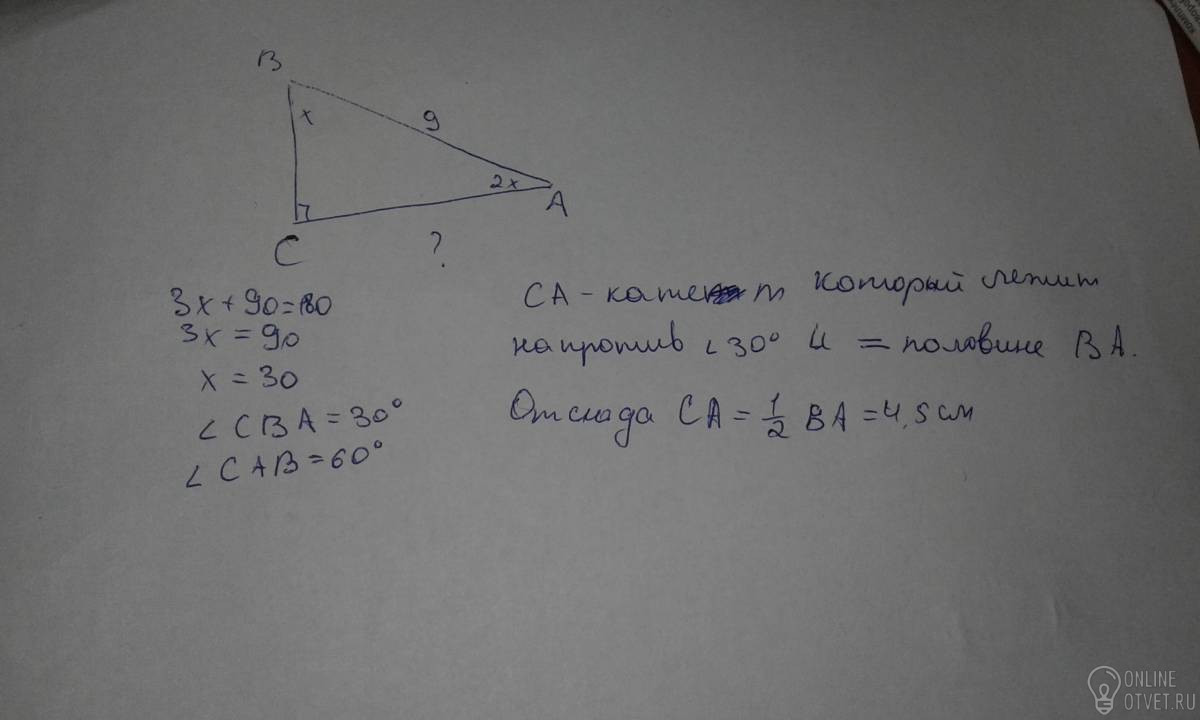 B
x
9
2x
A
C
?
3x + 90 = 180
3x = 90
x = 30
∠ CBA = 30°
∠ CAB = 60°
CA - катет который лежит
напротив ∠30° и = половине BA.
Отсюда CA = 1/2 BA = 4,5 см
ONLINE
OTVET.RU